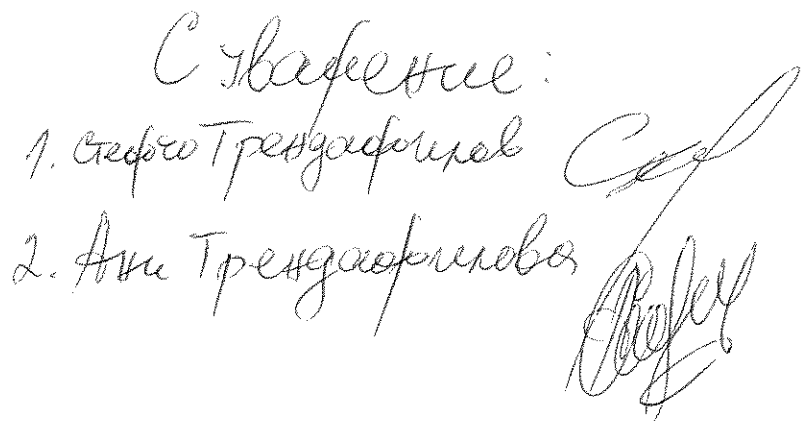 С уважение:
1. Стефчо Трендафилов
2. Ани Трендафилова